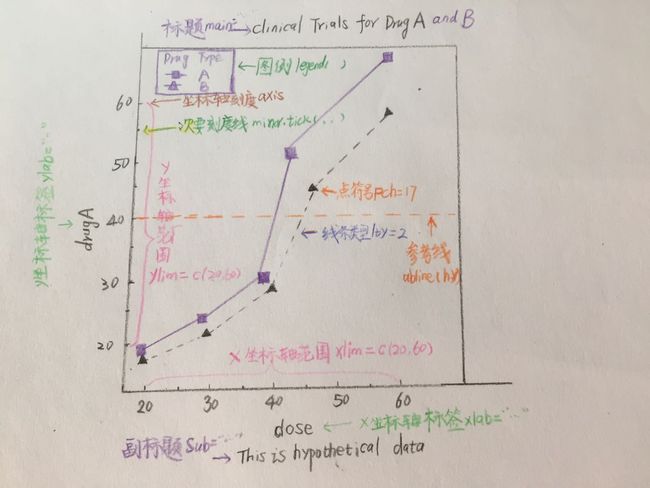 标题main→Clinical Trials for Drug A and B
Drug Type
A
B
←图例legend( )
60
←坐标轴刻度axis
←次要刻度线minor.tick(...)
50
y坐标轴标签ylab="..."
drugA
y坐标轴范围
ylim=c(20,60)
←点符号pch=17
40
←线条类型lty=2
参考线
abline(h,v)
30
20
X坐标轴范围xlim=c(20,60)
20 30 40 50 60
dose ← X坐标轴标签xlab="..."
副标题Sub="..."
→This is hypothetical data